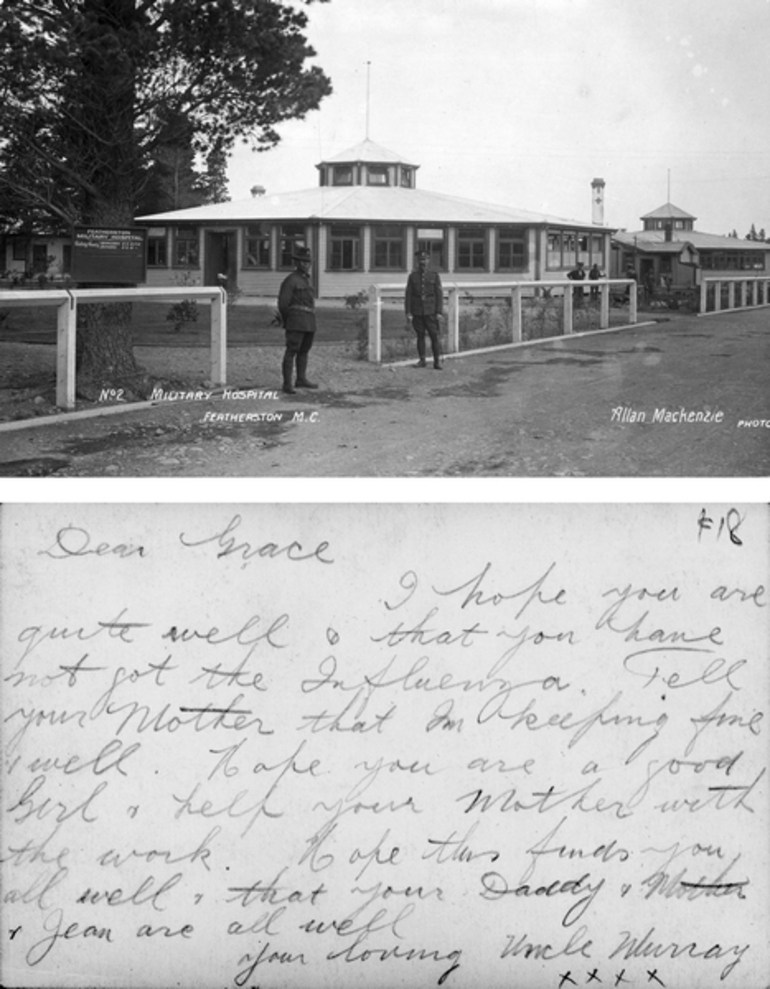 FEATHERSTON
MILITARY HOSPITAL
No 2 MILITARY HOSPITAL
FEATHERSTON M.C.
Allan Mackenzie PHOTO
F18
Dear Grace
I hope you are
quite well & that you have
not got the Influenza. Tell
your Mother that Im keeping fine
& well. Hope you are a good
Girl & help your Mother with
the work. Hope this finds you
all well & that your Daddy & Mother
& Jean are all well
your loving Uncle Murray
x x x x